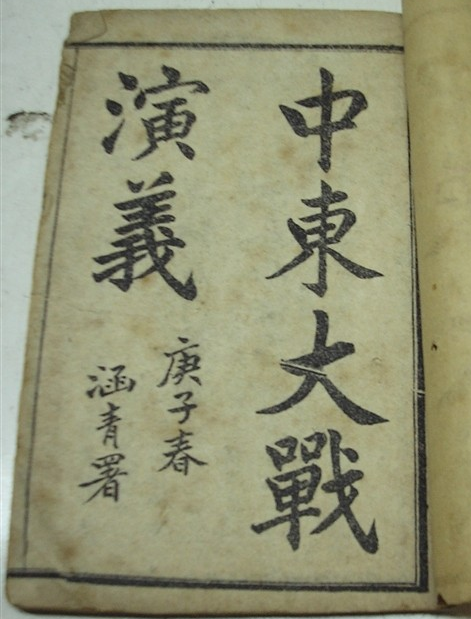 中東大戰
演義
庚子春
涵青署